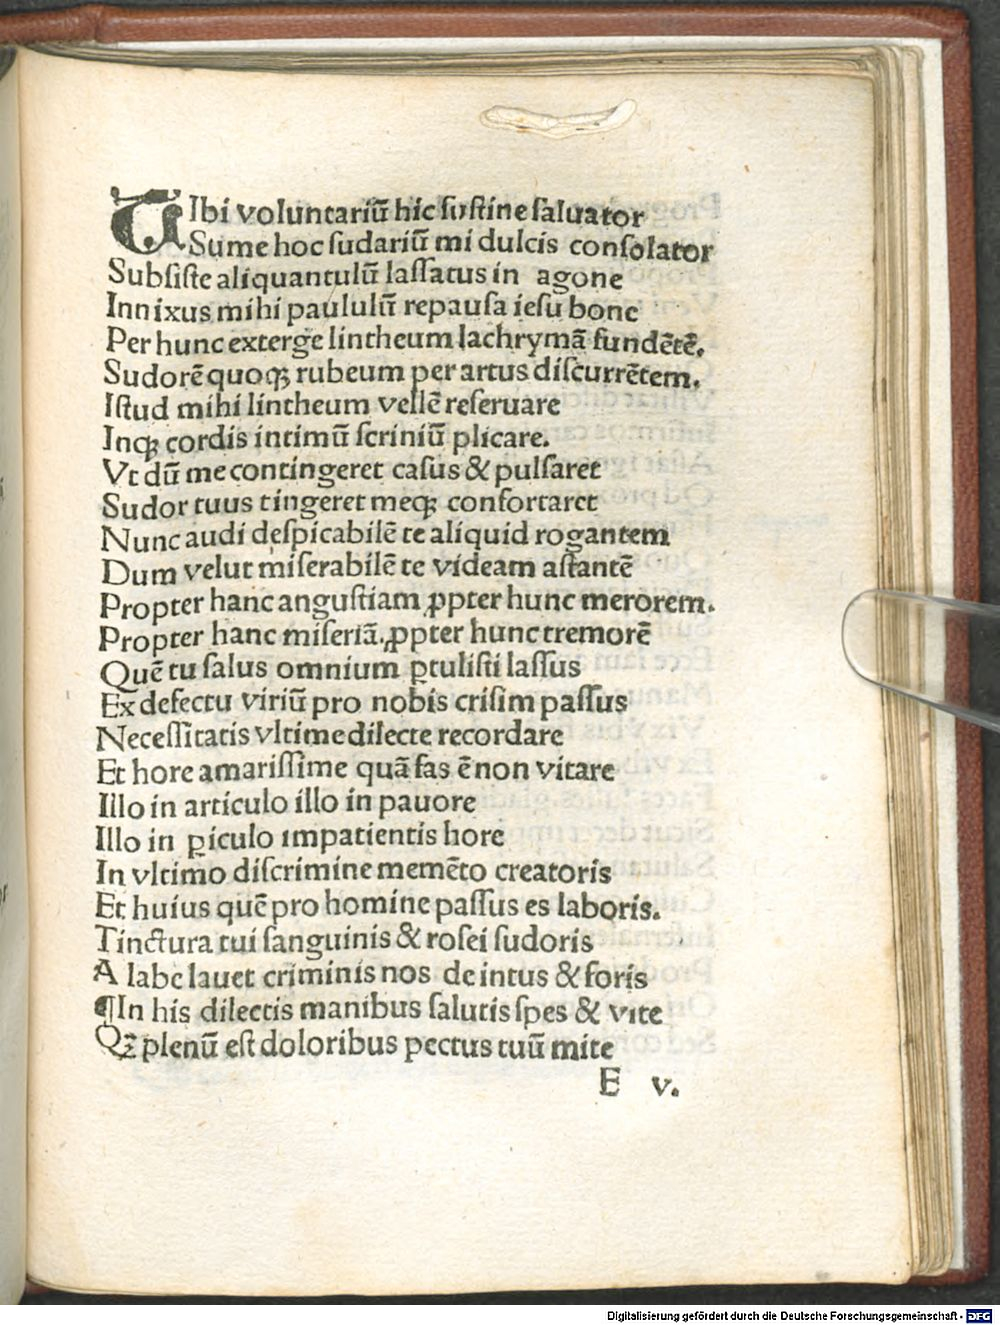 UIbi voluntariū hic ſuſtine ſaluator
Sume hoc ſudariū mi dulcis conſolator
Subſiſte aliquantulū laſſatus in agone
Innixus mihi paululū repauſa ieſu bone
Per hunc exterge lintheum lachrymā fundētē.
Sudorē quoqꝫ rubeum per artus diſcurrētem.
Iſtud mihi lintheum vellē reſeruare
Inqꝫ cordis intimū ſcriniū plicare.
Vt dū me contingeret caſus & pulſaret
Sudor tuus tingeret meqꝫ confortaret
Nunc audi deſpicabilē te aliquid rogantem
Dum velut miſerabilē te videam aſtantē
Propter hanc anguſtiam ꝓpter hunc merorem.
Propter hanc miſeriā. ꝓpter hunc tremorē
Quē tu ſalus omnium ꝑtuliſti laſſus
Ex defectu viriū pro nobis criſim paſſus
Neceſſitatis vltime dilecte recordare
Et hore amariſſime quā fas ē non vitare
Illo in articulo illo in pauore
Illo in ꝑiculo impatientis hore
In vltimo diſcrimine memēto creatoris
Et huius quē pro homine paſſus es laboris.
Tinctura tui ſanguinis & roſei ſudoris
A labe lauet criminis nos de intus & foris
¶In his dilectis manibus ſalutis ſpes & vite
Qꝫ plenū eſt doloribus pectus tuū mite
E v.
Digitalisierung gefördert durch die Deutsche Forschungsgemeinschaft - DFG